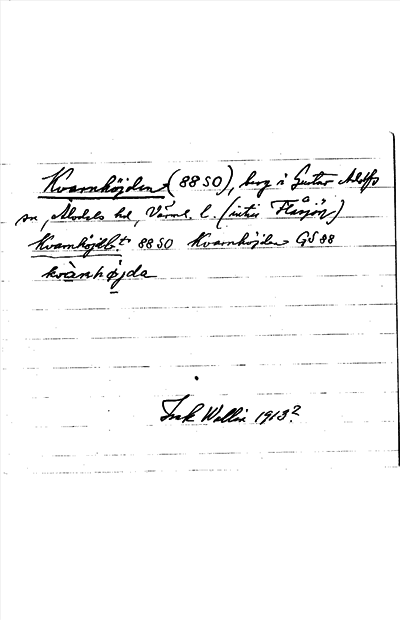 Kvarnhöjden (88 SO), berg i Gustav Adolfs
sn, Älvdals hd, Värml. l. (intill Flåsjön)
Kvarnhöjdb:t 88 SO Kvarnhöjden GS 88
kvànhøjda
Wallin 1913?